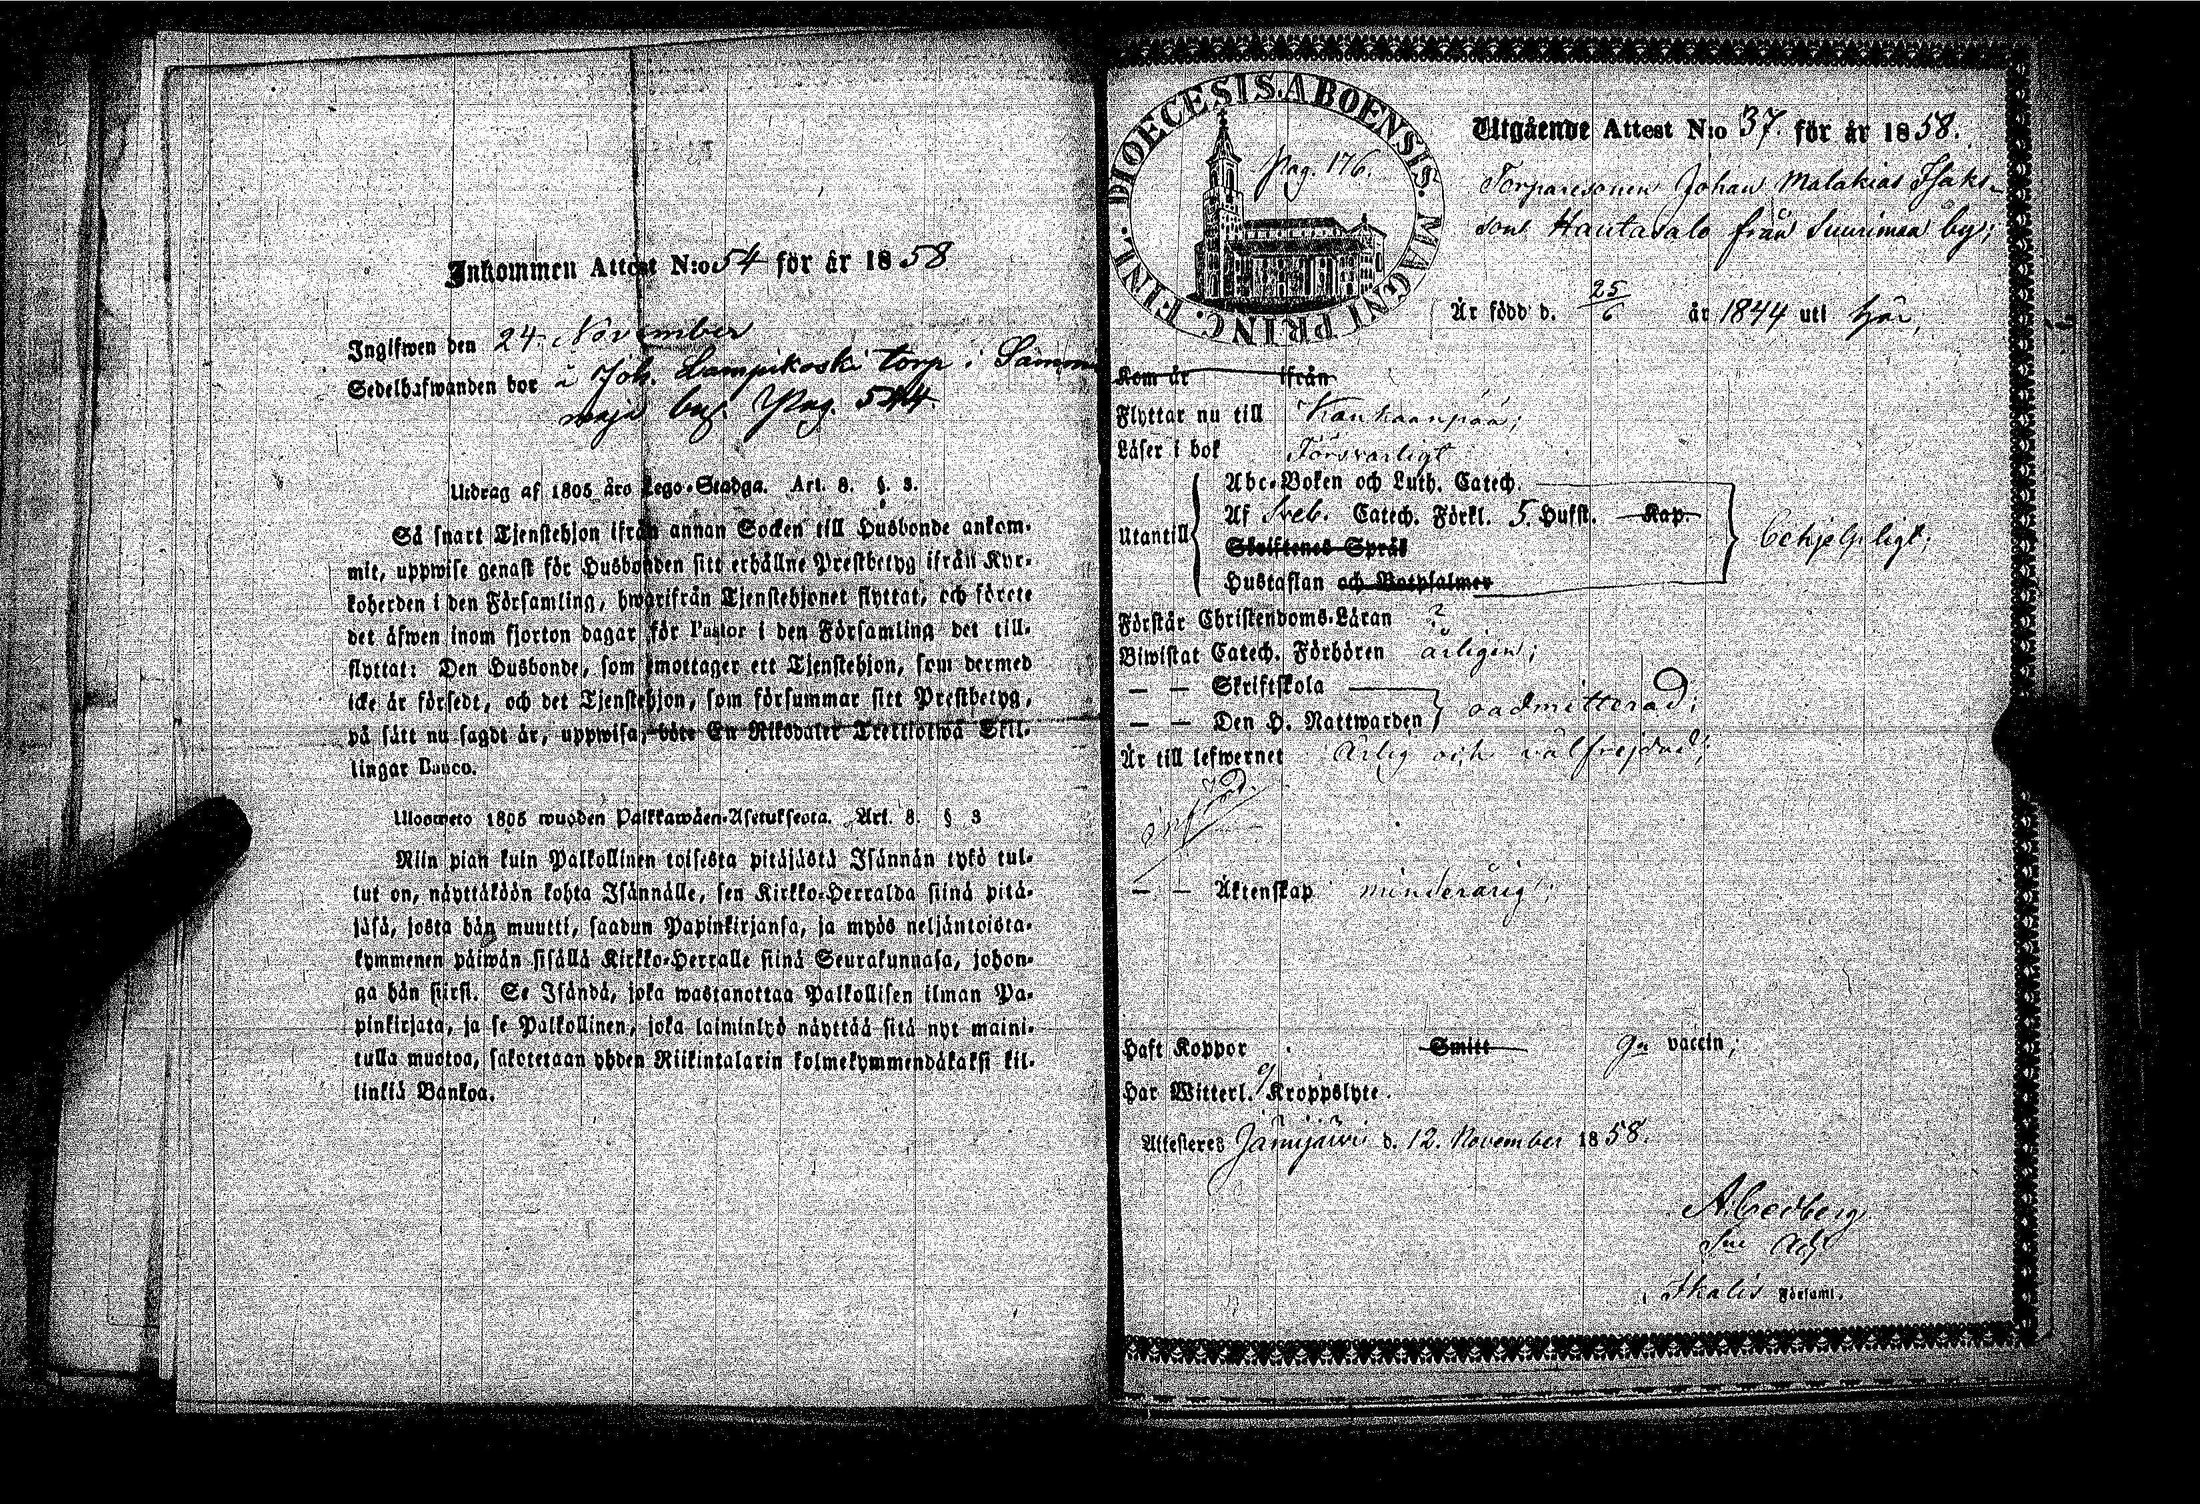 Inkommen Attest N:o 54 för år 1858
Inglfwen den 24 November
Sedelhafwanden bor å Joh. Lampikoski torp i Samm
maja by. Pag. 544.
Utdrag af 1805 års Lego-Stadga. Art. 8. §. 3.
Så snart Tjenstehjon ifrån annan Socken till Husbonde ankom-
mit, uppwise genast för Husbonden sitt erhållne Prestbetyg ifrån Kyr-
koherden i den Församling, hwarifrån Tjenstehjonet flyttat, och förete
det äfwen inom fjorton dagar för Pastor i den Församling det till-
flyttat: Den Husbonde, som emottager ett Tjenstehjon, som dermed
icke är försedt, och det Tjenstehjon, som försummar sitt Prestbetyg,
på sätt nu sagdt är, uppwisa, böte En Riksdaler Trettiotwå Skil-
lingar Banco.
Ulosweto 1805 wuoden Palkkawäen-Asetuksesta. Art. 8. § 3
Niin pian kuin Palkollinen toisesta pitäjästä Isännän tykö tul-
tut on, näyttäköön kohta Isännälle, sen Kirkko-Herralda siinä pitä-
jäsä, josta hän muutti, saadun Papinkirjansa, ja myös neljäntoista-
kymmenen päiwän sisällä Kirkko-Herralle siinä Seurakunnasa, johon-
ga hän siirsi. Se Isändä, joka wastanottaa Palkollisen ilman Pa-
pinkirjata, ja se Palkollinen, joka laiminlyö näyttää sitä nyt maini-
tulla muotoa, sakotetaan yhden Riikintalarin kolmekymmendäkaksi kil-
linkiä Bankoa.
DIOECESIS ABOENSIS. MAGNI PRINC. FINL.
Pag. 176.
Utgående Attest N:o 37. för år 1858.
Torparesonen Johan Malakias Isaks-
son Hautasalo från Suurimaa by;
Är född d. 25/6 år 1844 uti här;
Kom år ifrån
Flyttar nu till Kankaanpää;
Läser i bok Försvarligt
Abc-Boken och Luth. Catech.
Utantill Af Sveb. Catech. Förkl. 5. Hufst. Kap.
Skriftenes Språk
Hustaflan och Botpsalmer
Förstår Christendoms-Läran ?
Biwistat Catech. Förhören årligen;
— — Skriftskola
— — Den H. Nattwarden oadmitterad;
Är till lefwernet Ärlig och välfrejdad;
— — Äktenskap minderårig;
Haft Koppor Smitt vaccin;
Har Witterl. Kroppslyte.
Attesteres Jämijärvi d. 12. November 1858.
A. Cedberg
Ikalis Församl.